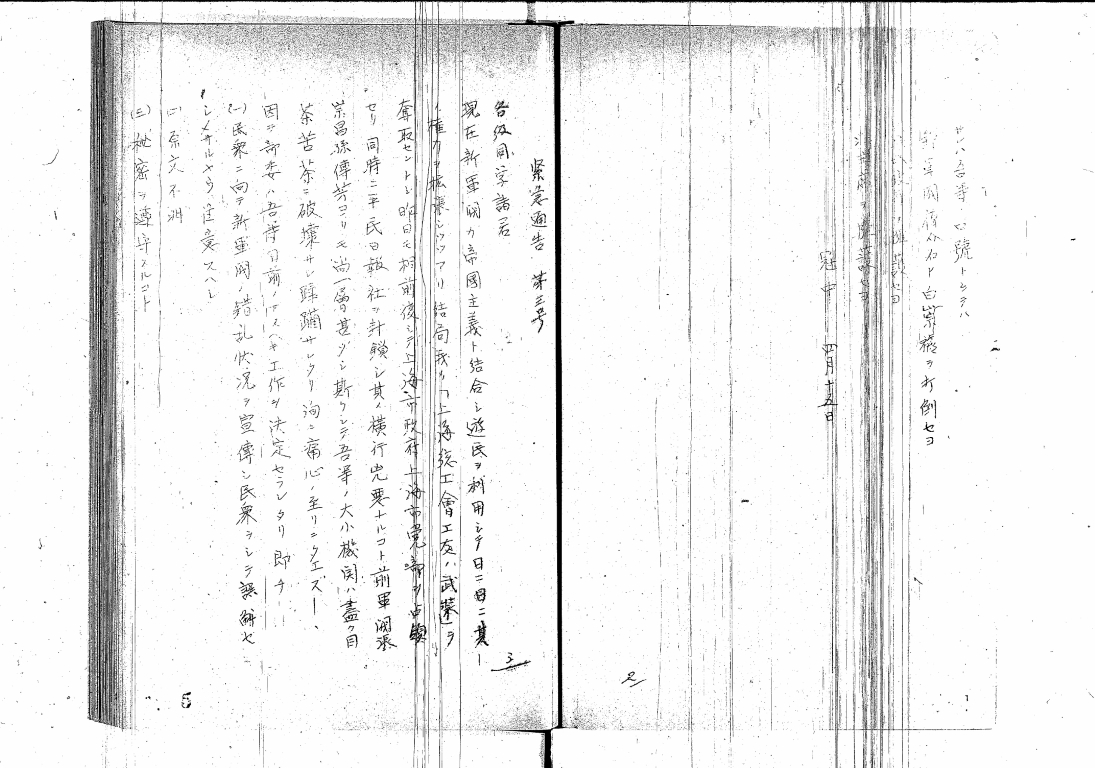 セハ吾等ノ口號トシテハ
新軍閥蒋介石ト白崇禧ヲ打倒セヨ
擁護セヨ
ヲ擁護セヨ
冠中 四月十五日
2
緊急通告 第三号
各級同学諸君
現在新軍閥カ帝國主義ト結合シ遊民ヲ利用シテ日ニ日ニ其ー
ノ権力ヲ拡張シツツアリ結局我カ上海総工會工友ハ武装ヲ
奪取セントシ昨日モ相前後シテ上海市政府上海市党部ヲ占領
セリ同時ニ平民日報社ヲ封鎖シ其ノ横行兇悪ナルコト前軍閥張
宗昌孫傳芳ヨリモ尚一層甚ダシ斯クシテ吾等ノ大小機関ハ盡ク目
茶苦茶ニ破壊サレ蹂躙サレタリ洵ニ痛心ノ至リニタエズー、
因テ部委ハ吾等目前ノナスベキ工作ヲ決定セラレタリ即チ
(一)民衆ニ向テ新軍閥ノ錯乱状況ヲ宣傳シ民衆ヲシテ誤解セ
シメサルヤウ注意スヘシ
(二)原文不明
(三)秘密ヲ遵守スルコト
3
5